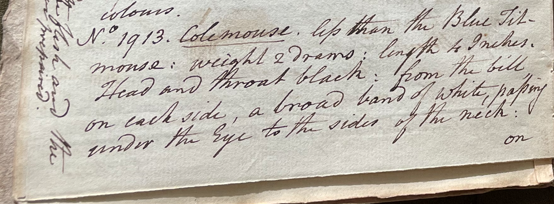 colours.
No 1913. Colemouse. less than the Blue Tit-
mouse: weight 2 drams: length 4 Inches.
Head and throat black: from the bill
on each side, a broad band of white, passing
under the Eye to the sides of the neck:
on
the flesh and the